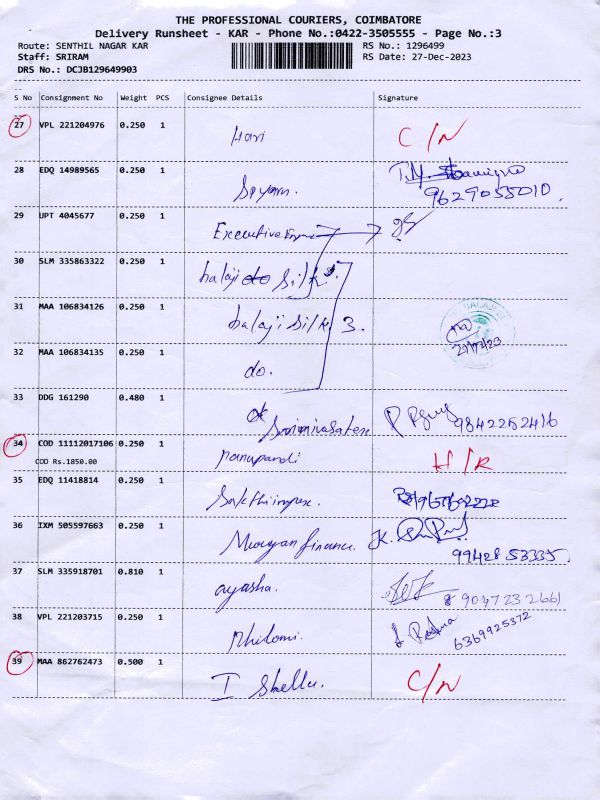 THE PROFESSIONAL COURIERS, COIMBATORE
Delivery Runsheet - KAR - Phone No.:0422-3505555 - Page No.:3
Route: SENTHIL NAGAR KAR RS No.: 1296499
Staff: SRIRAM RS Date: 27-Dec-2023
DRS No.: DCJB129649903
S No Consignment No Weight PCS Consignee Details Signature
27 VPL 221204976 0.250 1 Hari C/N
28 EDQ 14989565 0.250 1 Sryam. T.M.
9629055010.
29 UPT 4045677 0.250 1 Executive
30 SLM 335863322 0.250 1 balaji do silk
31 MAA 106834126 0.250 1 balaji silk 3.
27/12/23
32 MAA 106834135 0.250 1 do.
33 DDG 161290 0.480 1 9842252416
34 COD 11112017106 0.250 1 H/R
COD Rs.1850.00
35 EDQ 11418814 0.250 1
36 IXM 505597663 0.250 1 finance. K.
99428 53335.
37 SLM 335918701 0.810 1 ayasha. 9047232661
38 VPL 221203715 0.250 1 6369925372
39 MAA 862762473 0.500 1 I C/N